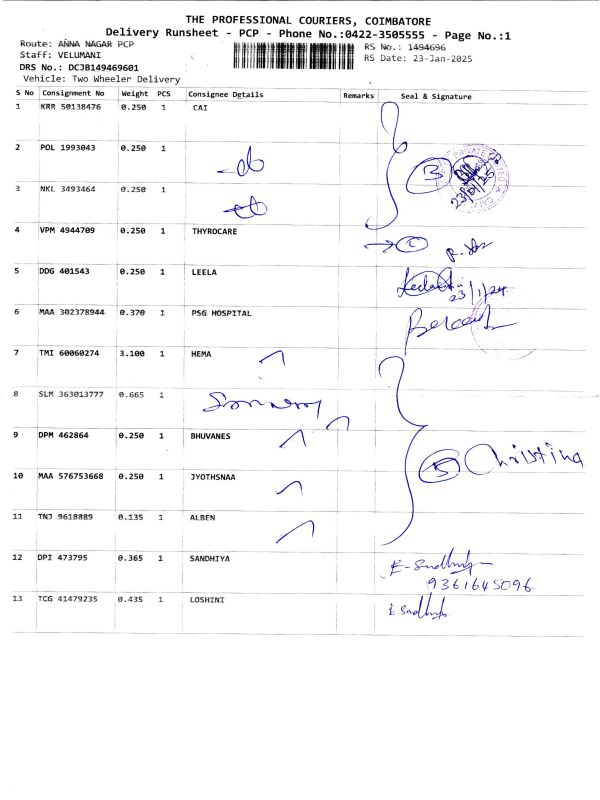 THE PROFESSIONAL COURIERS, COIMBATORE
Delivery Runsheet - PCP - Phone No.:0422-3505555 - Page No.:1
Route: ANNA NAGAR PCP
RS No.: 1494696
Staff: VELUMANI
RS Date: 23-Jan-2025
DRS No.: DCJB149469601
Vehicle: Two Wheeler Delivery
S No Consignment No Weight PCS Consignee Details Remarks Seal & Signature
1 KRR 50138476 0.250 1 CAI
2 POL 1993043 0.250 1
3 NKL 3493464 0.250 1
3 PRIVATE
23/01/25
4 VPM 4944709 0.250 1 THYROCARE
5 DDG 401543 0.250 1 LEELA
23/1/24
6 MAA 302378944 0.370 1 PSG HOSPITAL
7 TMI 60060274 3.100 1 HEMA
8 SLM 363013777 0.665 1
9 DPM 462864 0.250 1 BHUVANES
5 Christina
10 MAA 576753668 0.250 1 JYOTHSNAA
11 TNJ 9618889 0.135 1 ALBEN
12 DPI 473795 0.365 1 SANDHIYA
9361645096
13 TCG 41479235 0.435 1 LOSHINI